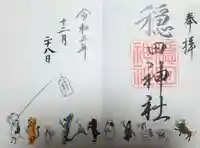 奉拝
穏田神社
令和三年
十二月
二十八日